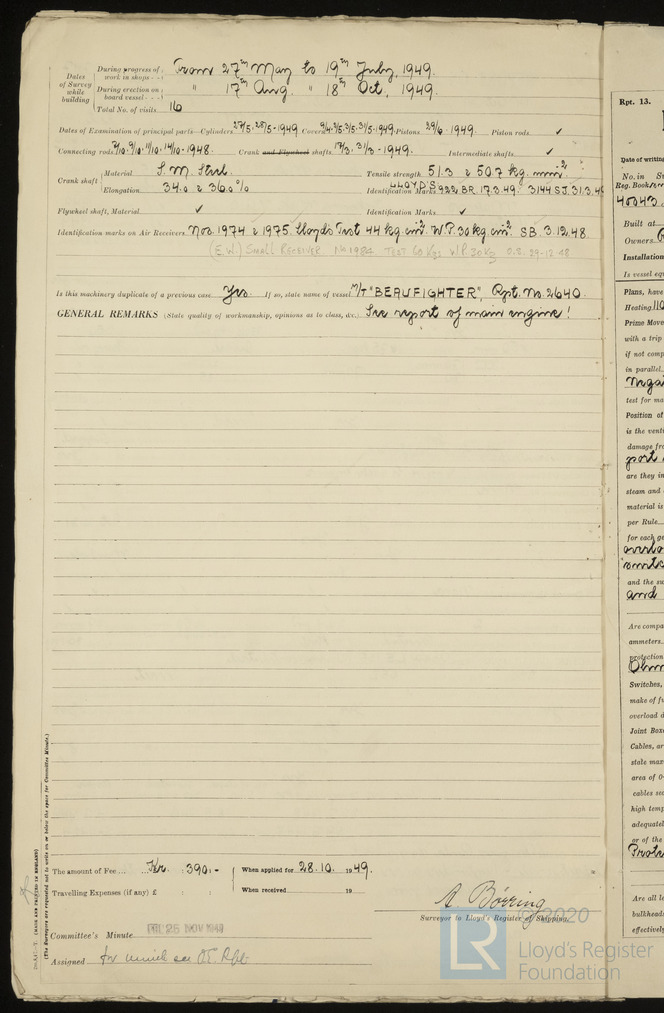 Dates of Survey while building
During progress of work in shops - - From 27th May to 19th July, 1949.
During erection on board vessel - - - " 17th Aug. " 18th Oct, 1949.
Total No. of visits 16
Dates of Examination of principal parts—Cylinders 27/5. 28/5 - 1949 Covers 3/5. 31/5. 1949. Pistons 29/6. 1949. Piston rods ✓
Connecting rods 7/10. 9/10. 11/10. 14/10 - 1948. Crank and Flywheel shafts 17/3. 31/3 - 1949. Intermediate shafts ✓
Crank shaft
Material S. M. Steel. Tensile strength 51.3 & 50.7 kg. mm²
Elongation 34.0 & 36.0% Identification Marks LLOYD'S 922 BR 17.3.49. 3144 SJ. 31.3.49
Flywheel shaft, Material ✓ Identification Marks ✓
Identification marks on Air Receivers Nos 1974 & 1975. Lloyds Test 44 kg.cm². W.P. 30 kg.cm². SB. 3.12.48.
(E.W.) Small Receiver No 1984 Test 60 Kgs W.P. 30 Kg 29-12-48
Is this machinery duplicate of a previous case Yes. If so, state name of vessel M/T "BEAUFIGHTER", Rpt. No. 2640.
GENERAL REMARKS (State quality of workmanship, opinions as to class, &c.) See report of main engine!
The amount of Fee ... Kr. : 390.- When applied for 28.10. 1949.
Travelling Expenses (if any) £ : : When received 19
A. Børring
Surveyor to Lloyd's Register of Shipping.
© 2020
Committee's Minute FRI. 25 NOV 1949
Assigned for minute see
(MADE AND PRINTED IN ENGLAND)
(The Surveyors are requested not to write on or below the space for Committee Minute.)
LR
Lloyd's Register
Foundation
Rpt. 13.
Date of writing
No. in
Reg. Book
40043
Built at
Owners
Installation
Is vessel equ
Plans, have
Heating
Prime Move
with a trip
if not comp
in parallel
test for ma
Position of
is the venti
damage fro
port
are they in
steam and
material is
per Rule
for each ge
overlo
switc
and the su
and
Are compa
ammeters
protection
Switches,
make of fu
overload d
Joint Boxe
Cables, ar
state max
area of 0·
cables sec
high temp
adequatel
or of the
Prote
Are all le
bulkheads
effectively